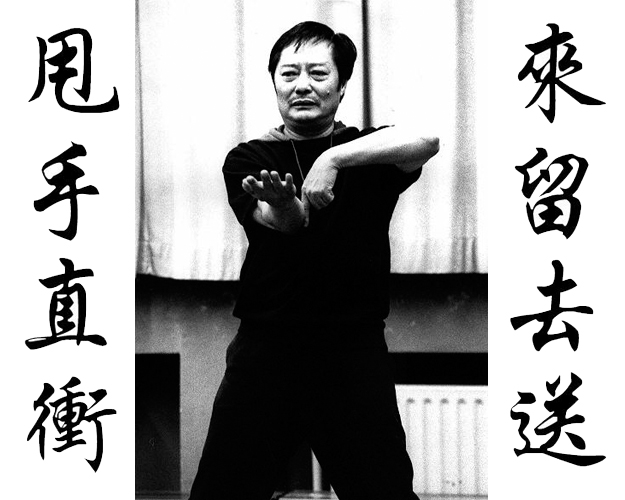 來留去送
甩手直衝